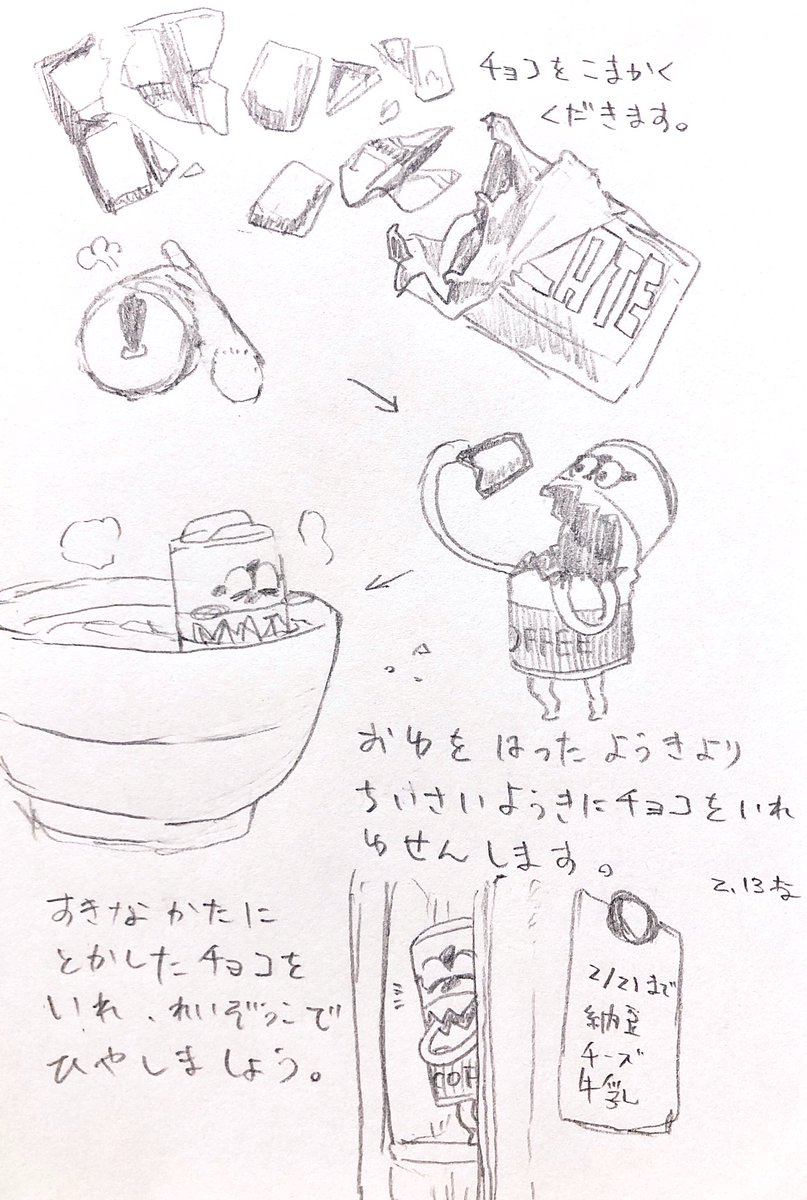 チョコをこまかく
くだきます。
ATE
COFFEE
おゆをはったようきより
ちいさいようきにチョコをいれ
ゆせんします。
2.13な
すきなかたに
とかしたチョコを
いれ、れいぞっこで
ひやしましょう。
COF
2/21まで
納豆
チーズ
牛乳